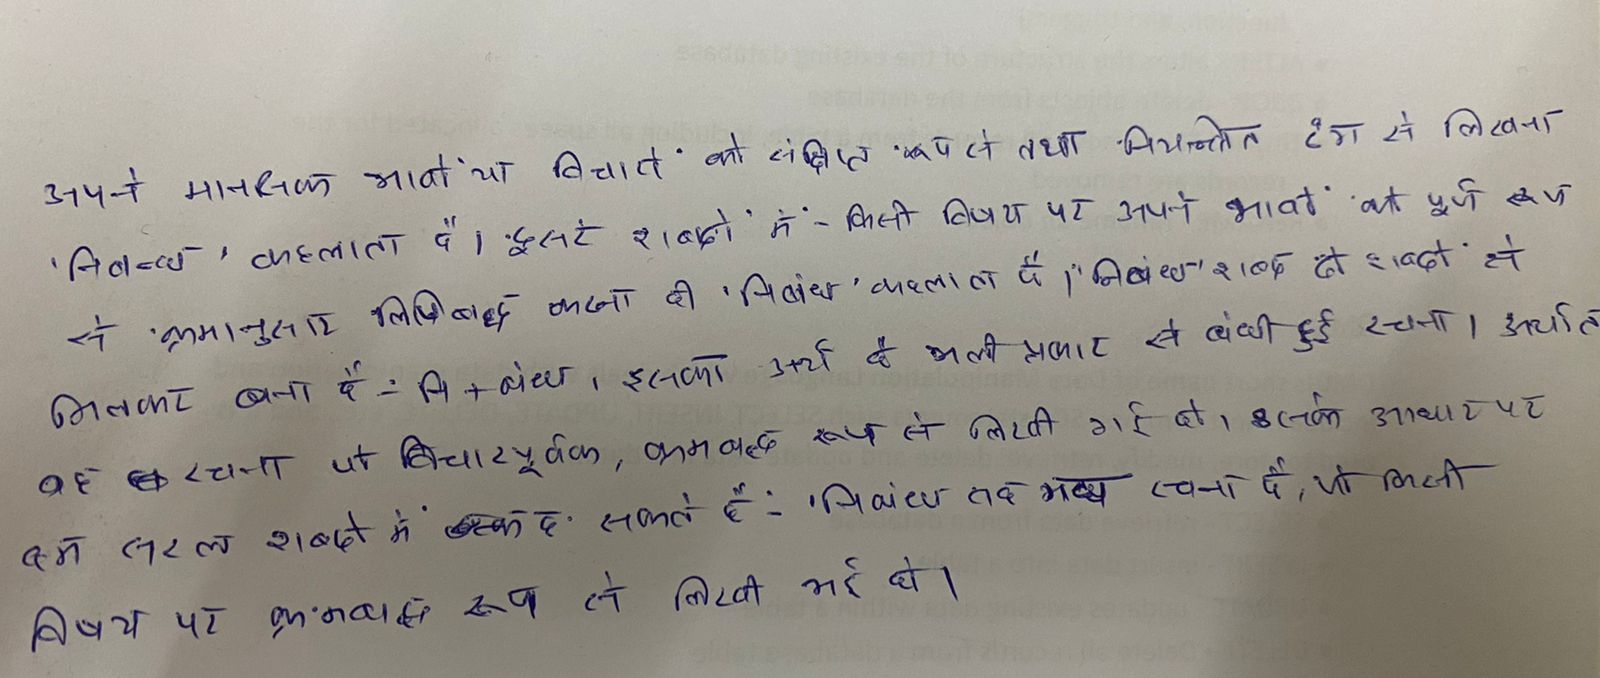 अपने मानसिक भावों या विचारों को संक्षिप्त रूप से तथा नियन्त्रित ढंग से लिखना
'निबन्ध' कहलाता है। दूसरे शब्दों में - किसी विषय पर अपने भावों को पूर्ण रूप
से क्रमानुसार लिपिबद्ध करना ही 'निबंध' कहलाता है। 'निबंध' शब्द दो शब्दों से
मिलकर बना है - नि + बंध। इसका अर्थ है भली प्रकार से बंधी हुई रचना। अर्थात
वह रचना जो विचारपूर्वक, क्रमबद्ध रूप से लिखी गई हो। इसके आधार पर
हम सरल शब्दों में कह सकते हैं - 'निबंध वह गद्य रचना है, जो किसी
विषय पर क्रमबद्ध रूप से लिखी गई हो।